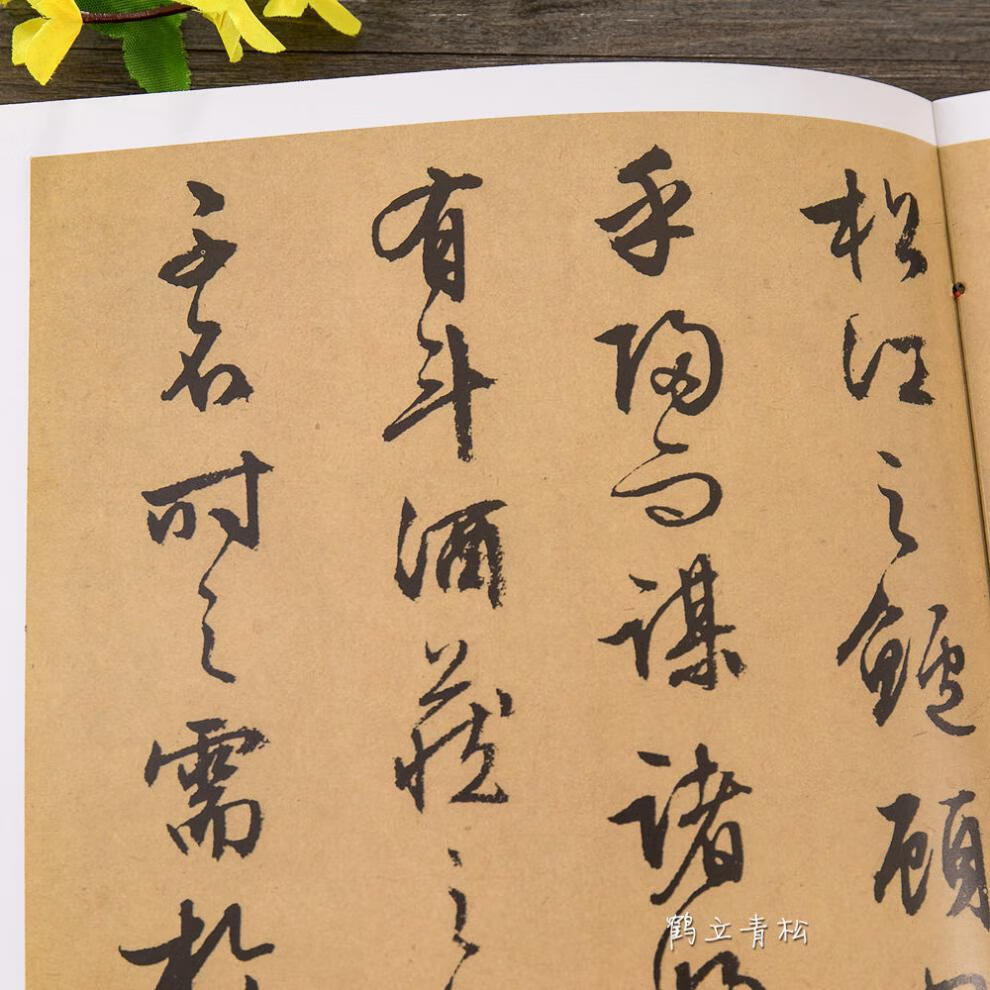 松江之鱸顧
乎歸而謀諸婦
有斗酒藏之
子不時之需於
鹤立青松